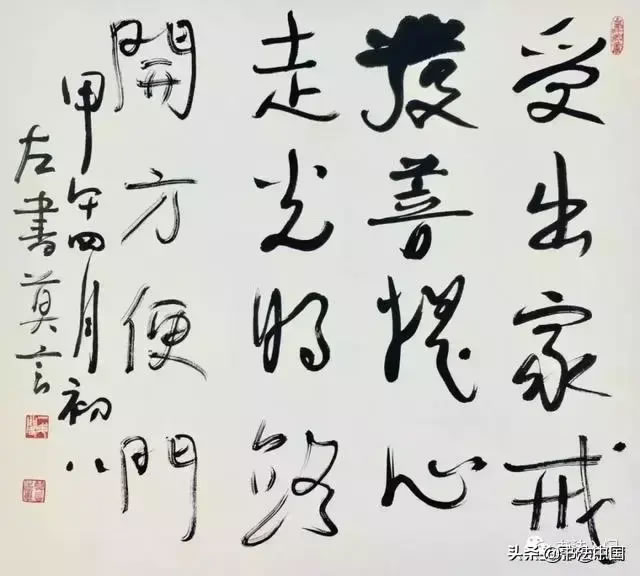 受出家戒
發菩提心
走光明路
開方便門
甲午四月初八
左書莫言
头条 @书法中国